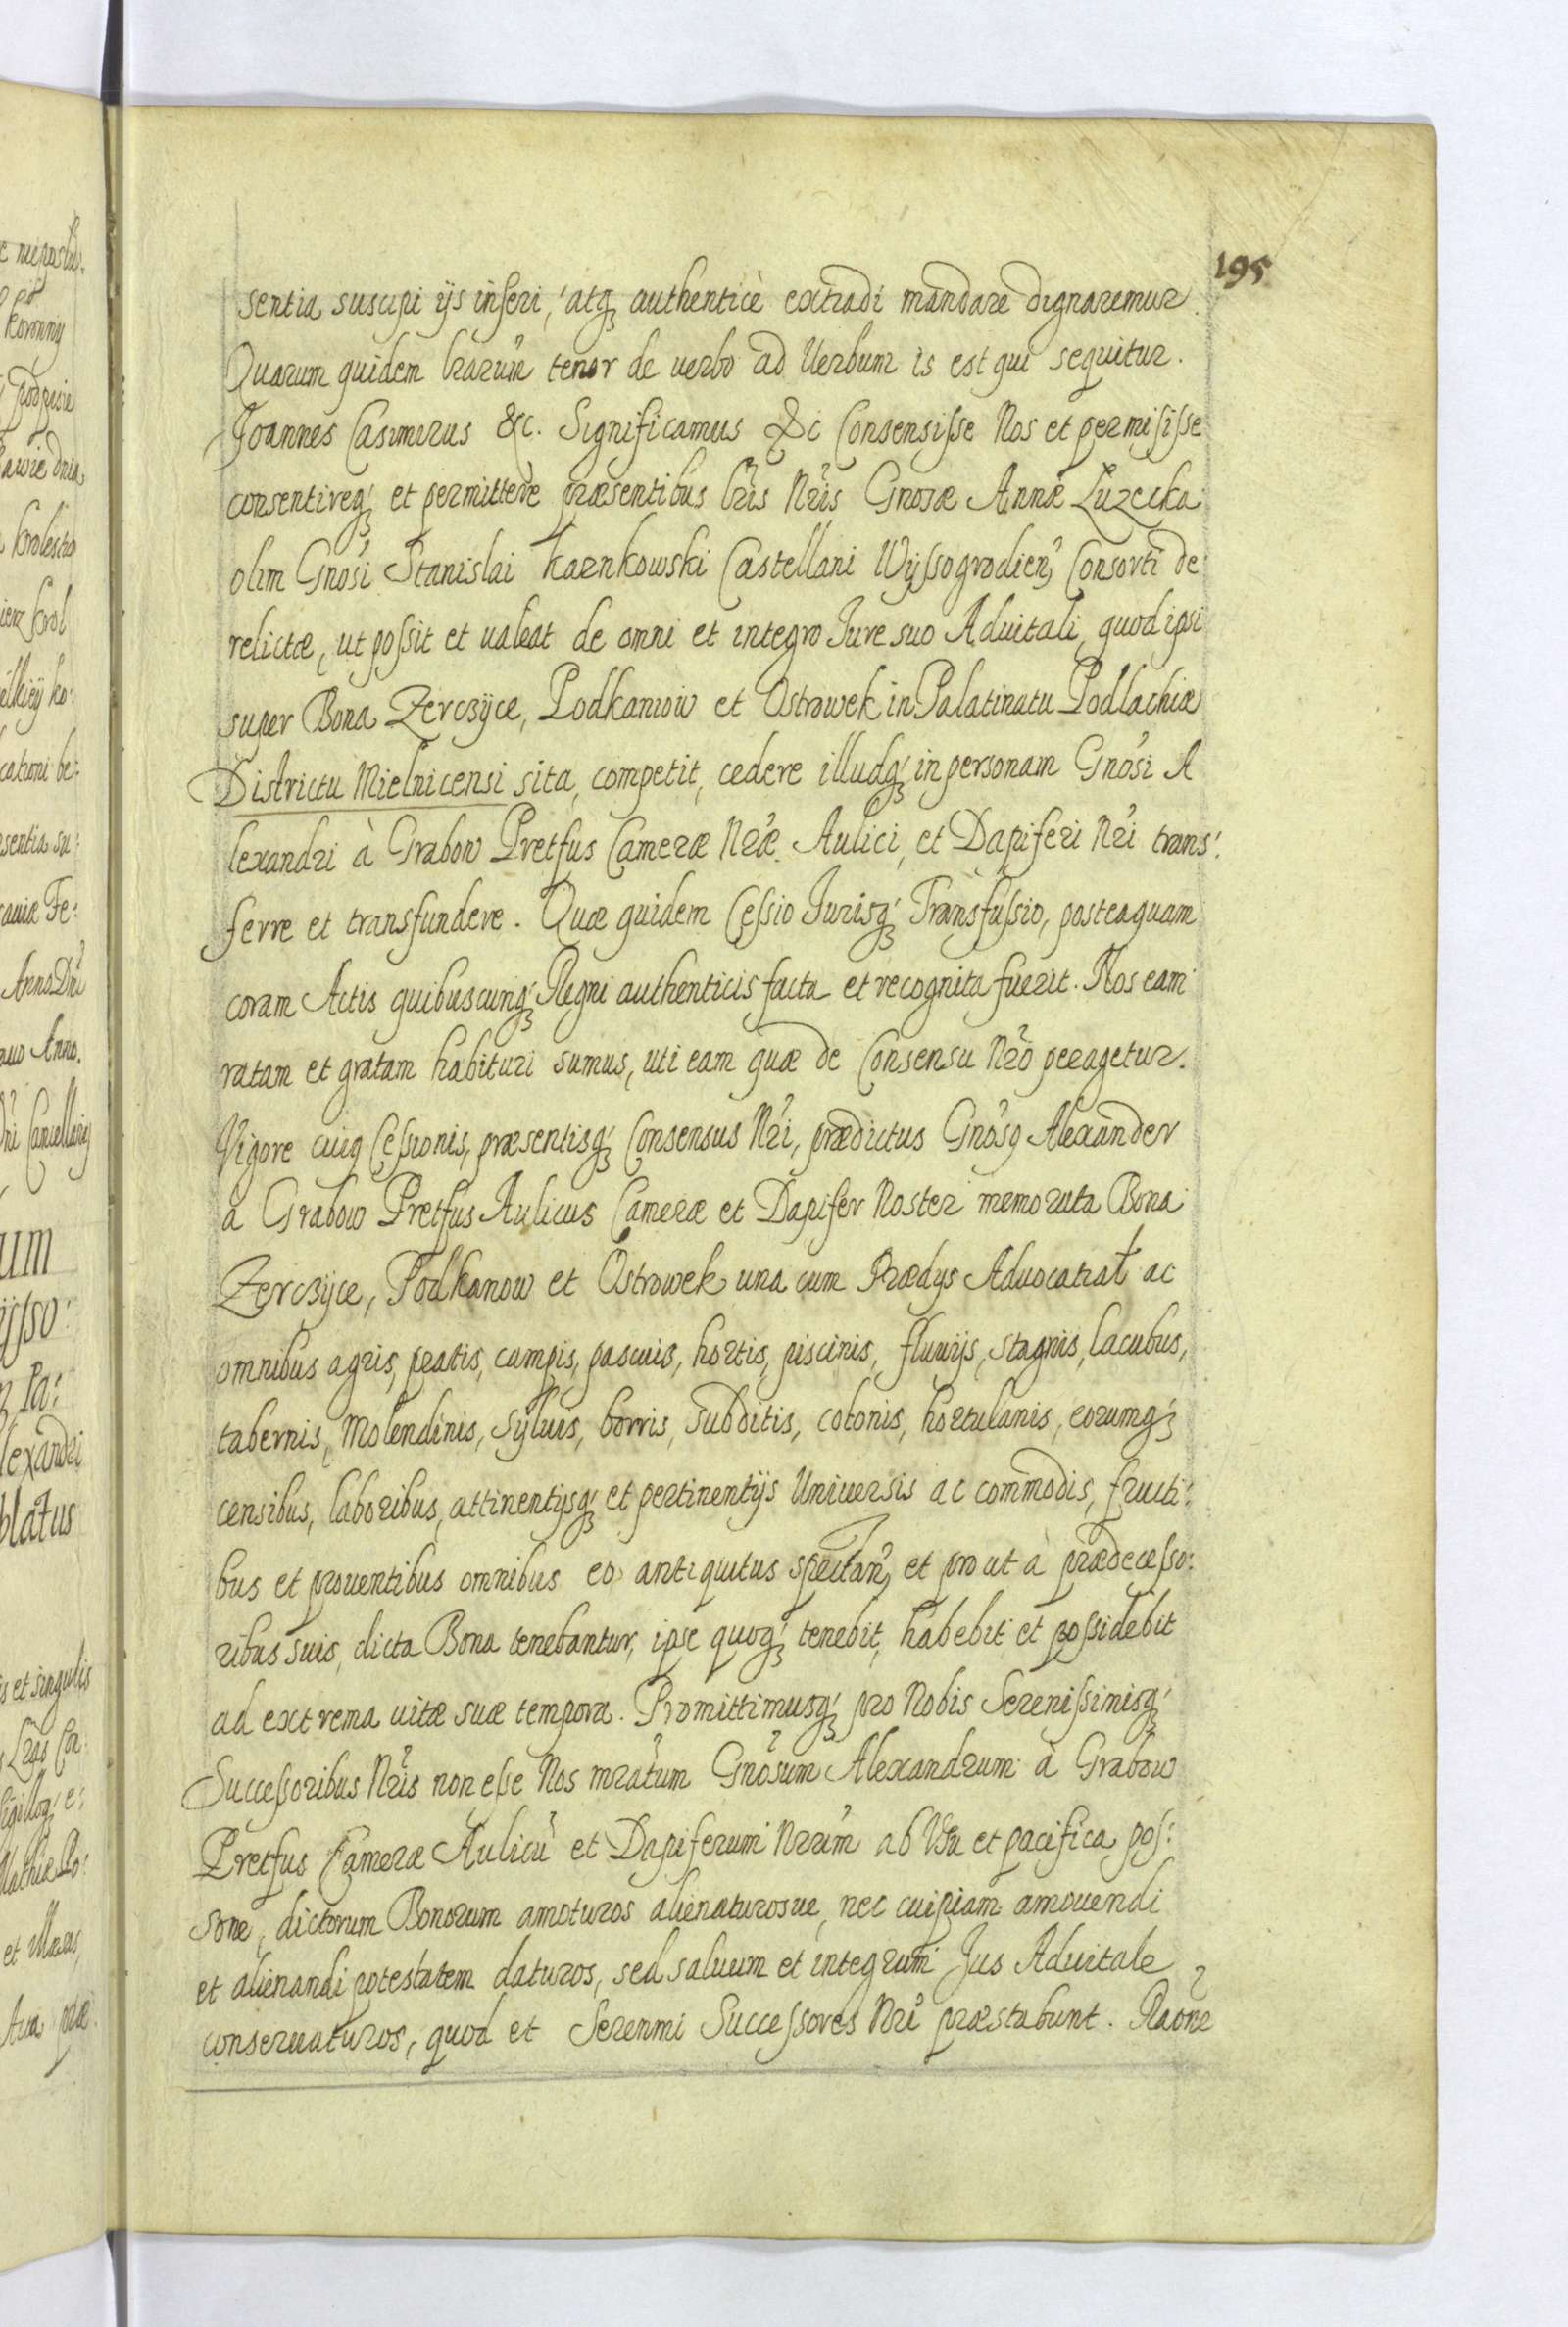 195
sentia suscipi ijs inseri, atq3 authenticè extradi mandare dignaremur.
Quarum quidem lrarum̃ tenor de uerbo ad Uerbum is est qui sequitur.
Joannes Casimirus &c. Significamus &c Consensisse Nos et permisisse
consentireq3 et permittere præsentibus lris̃ Nris̃ Gnosæ Annæ Luzecka
olim Gnosi Stanislai Karnkowski Castellani Wyssogrodien̄ Consorti de
relictæ, ut possit et ualeat de omni et integro Jure suo Aduitali, quod ipsi
super Bona Zerczyce, Podkaniow et Ostrowek in Palatinatu Podlachiæ
Districtu Mielnicensi sita, competit, cedere illudq3 in personam Gnosi A
lexandri à Grabow Pretfus Cameræ Nræ Aulici, et Dapiferi Nri trans:
ferre et transfundere. Quæ quidem Cessio Jurisq3 Transfussio, posteaquam
coram Actis quibuscunq3 Regni authenticis facta et recognita fuerit. Nos eam
ratam et gratam habituri sumus, uti eam quæ de Consensu Nrõ peragetur.
Vigore cuiq Cessionis, præsentisq3 Consensus Nri, prædictus Gnosq Alexander
a Grabow Pretfus Aulicus Cameræ et Dapifer Noster memorata Bona
Zerczyce, Podkanow et Ostrowek una cum Prædys Aduocatiat ac
omnibus agris, pratis, campis, pascuis, hortis, piscinis, fluuijs, stagnis, lacubus,
tabernis, Molendinis, Syluis, borris, subditis, colonis, hortulanis, eorumq3
censibus, laboribus, attinentijsq3 et pertinentijs Uniuersis ac commodis, fructi:
bus et prouentibus omnibus eo antiquitus spectan̄, et prout à prædecesso:
ribus suis, dicta Bona tenebantur, ipse quoq3 tenebit, habebit et possidebit
ad extrema uitæ suæ tempora. Promittimusq3 pro Nobis Serenissimisq3
Successoribus Nris̃ non esse Nos mratum̃ Gnosum Alexandrum à Grabow
Pretfus Cameræ Aulicũ et Dapiferum Nrum̃ ab Usu et pacifica pos:
sone, dictorum Bonorum amoturos alienaturosue, nec cuipiam amouendi
et alienandi potestatem daturos, sed saluum et integrum Jus Aduitale
conseruaturos, quod et Serenmi Successores Nri præstabunt. Raone